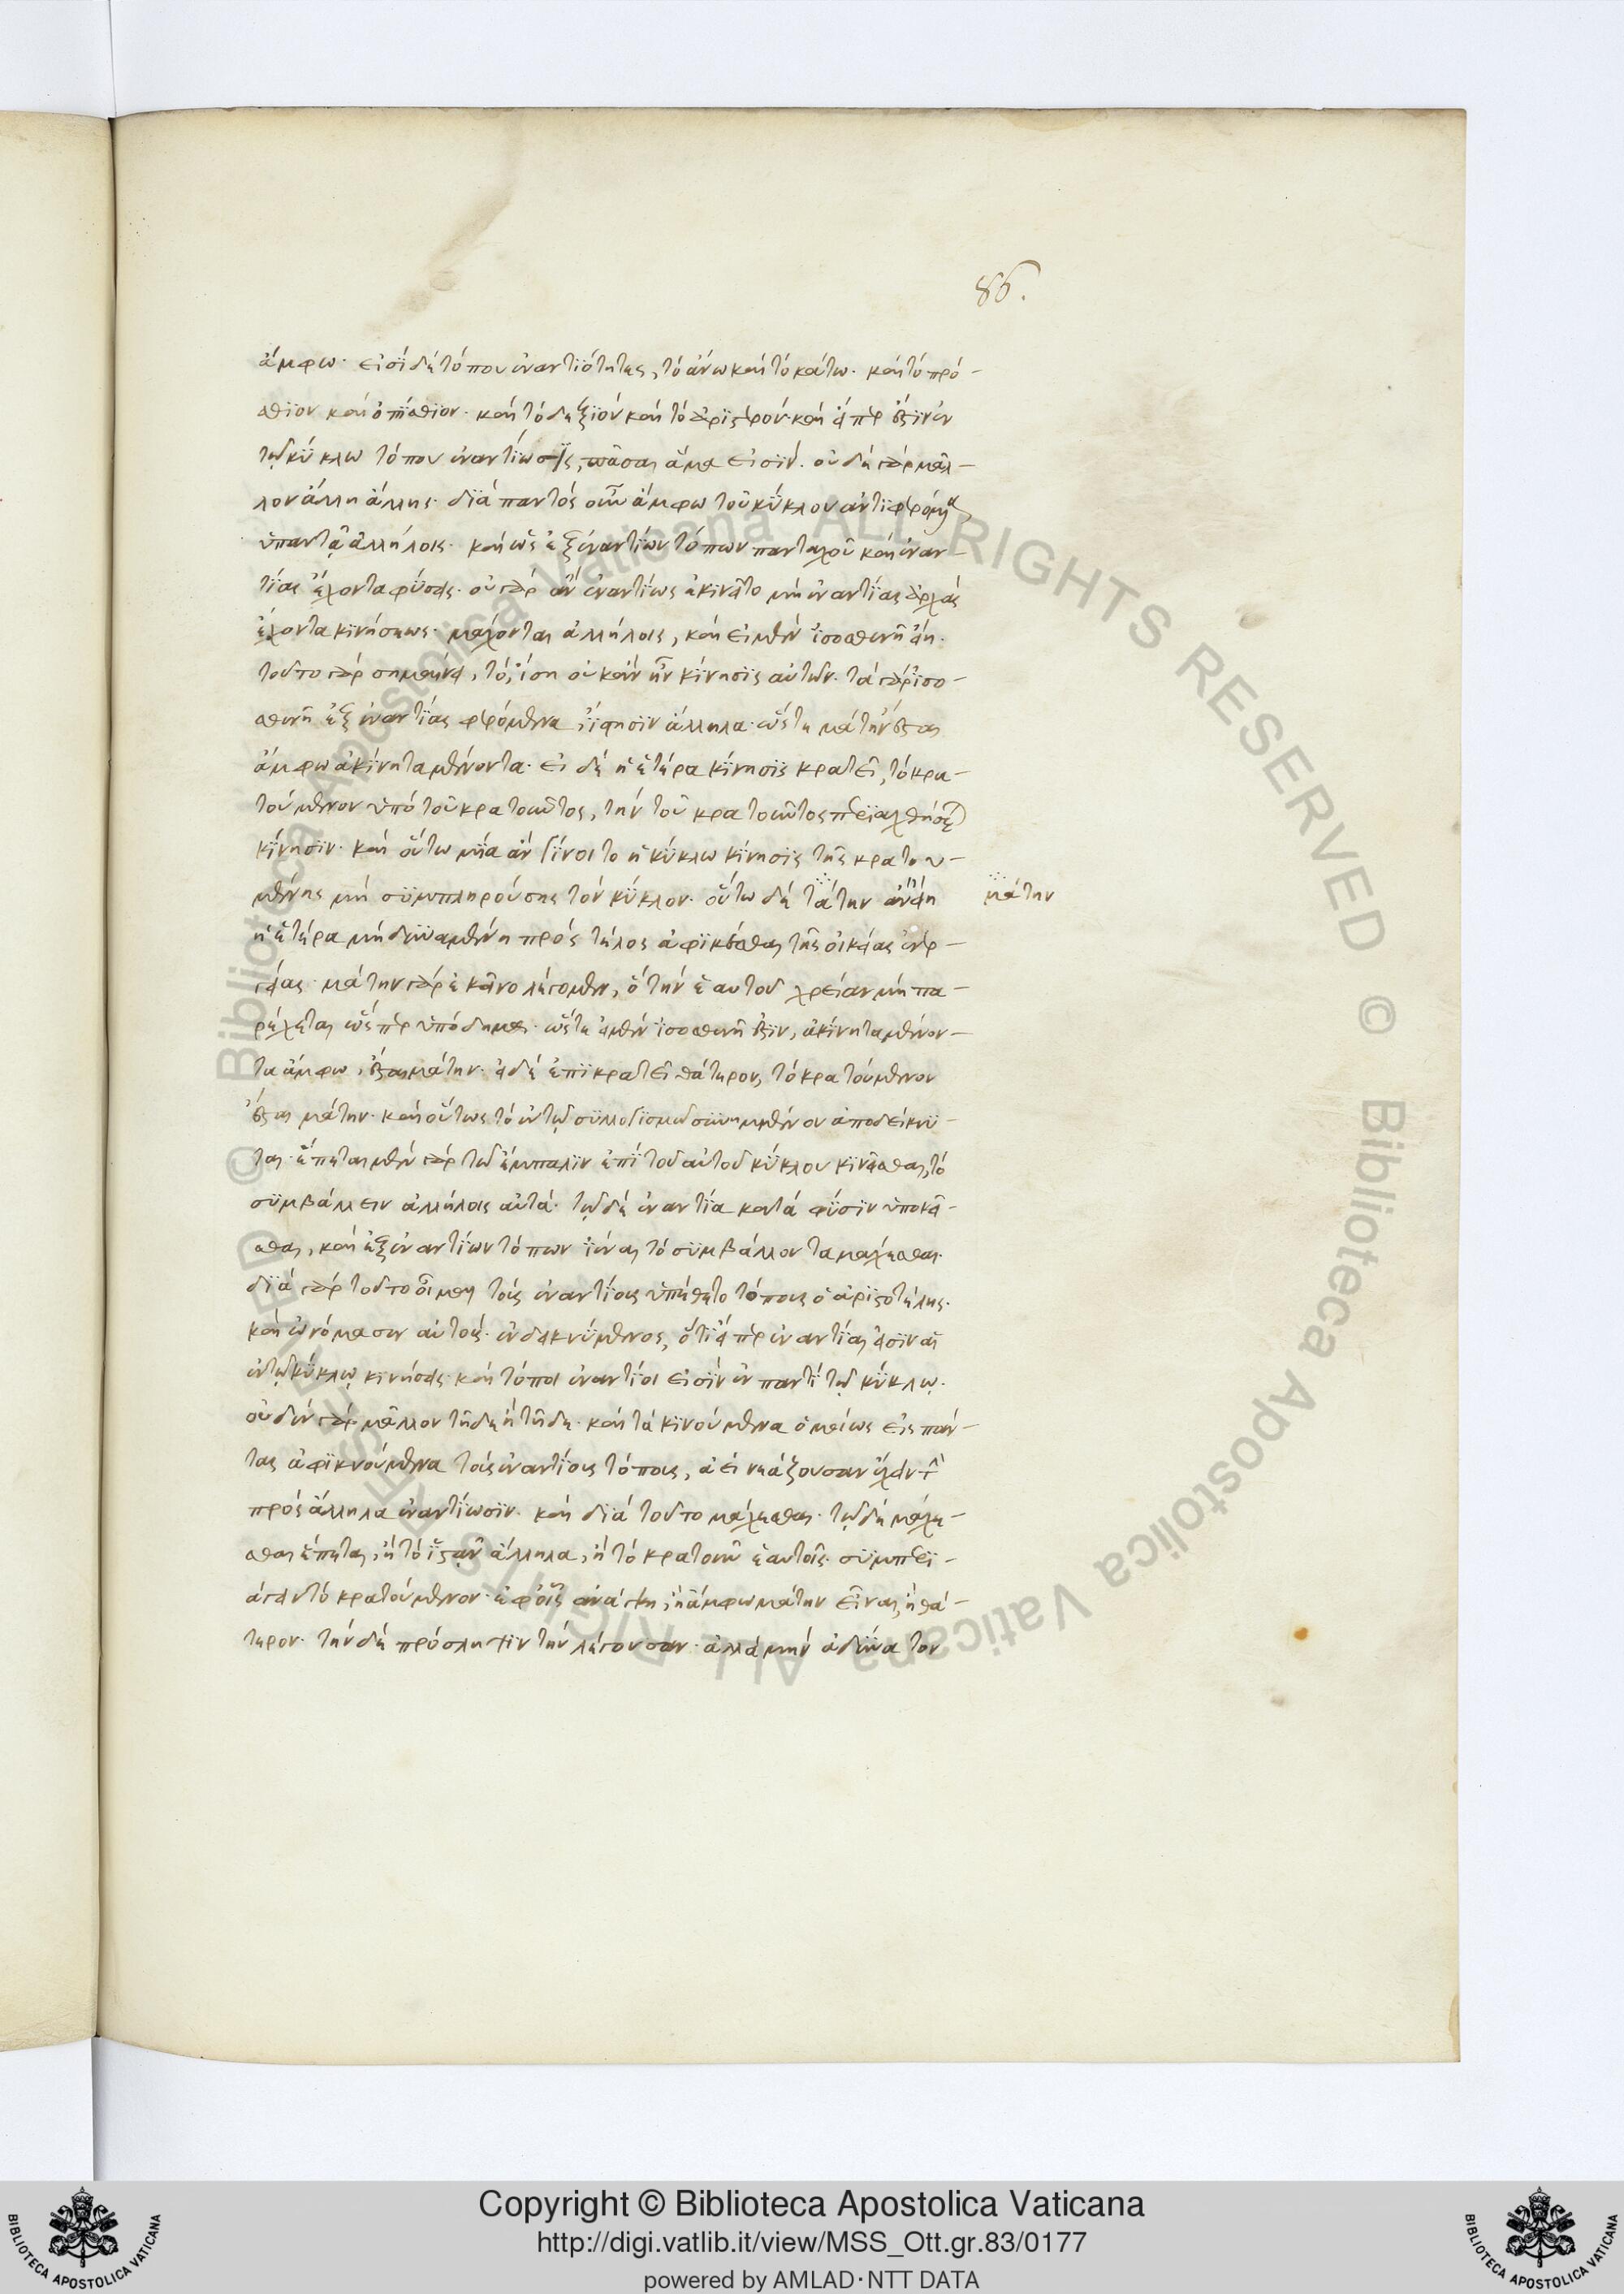 86.
ἄμφω· εἰσὶ δὲ τόπου ἐναντιότητες, τὸ ἄνω καὶ τὸ κάτω· καὶ τὸ πρό-
σθιον καὶ ὀπίσθιον· καὶ τὸ δεξιὸν καὶ τὸ ἀριστερόν· καὶ αἵπερ εἰσὶν ἐν
τῷ κύκλῳ τόπου ἐναντιώσεις, πᾶσαι ἅμα εἰσίν. οὐδὲ γὰρ μᾶλ-
λον ἄλλη ἄλλης· διὰ παντὸς οὖν ἄμφω τοῦ κύκλου ἀντιφερόμενα
ὑπαντᾷ ἀλλήλοις· καὶ ὡς ἐξ ἐναντίων τόπων πανταχοῦ καὶ ἐναν-
τίας ἔχοντα φύσεις· οὐ γὰρ ἂν ἐναντίως ἐκινεῖτο μὴ ἐναντίας ἀρχὰς
ἔχοντα κινήσεως· μάχονται ἀλλήλοις, καὶ εἰ μὲν ἰσοσθενῆ εἴη·
τοῦτο γὰρ σημαίνει, τὸ, ἴση οὐκ ἂν ἦν κίνησις αὐτῶν· τὰ γὰρ ἰσο-
σθενῆ ἐξ ἐναντίας φερόμενα, ἵστησιν ἄλληλα· ὥστε μάτην ἔσται
ἄμφω ἀκίνητα μένοντα· εἰ δὲ ἡ ἑτέρα κίνησις κρατεῖ, τὸ κρα-
τούμενον ὑπὸ τοῦ κρατοῦντος, τὴν τοῦ κρατοῦντος περιαχθήσεται
κίνησιν· καὶ οὕτω μία ἂν γίνοιτο ἡ κύκλῳ κίνησις τῆς κρατου-
μένης μὴ συμπληρούσης τὸν κύκλον· οὕτω δὲ τάτην ἂν εἴη
μάτην
ἡ ἑτέρα μὴ δυναμένη πρὸς τέλος ἀφικέσθαι τῆς οἰκείας ἐνερ-
γείας· μάτην γὰρ ἐκεῖνο λέγομεν, ὃ τὴν ἑαυτοῦ χρείαν μὴ πα-
ρέχεται ὥσπερ ὑπόδημα· ὥστε εἰ μὲν ἰσοσθενῆ ἐστιν, ἀκίνητα μένον-
τα ἄμφω, ἔσται μάτην· εἰ δὲ ἐπικρατεῖ θάτερον, τὸ κρατούμενον
ἔσται μάτην· καὶ οὕτως τὸ ἐν τῷ συλλογισμῷ συνημμένον ἀποδείκνυ-
ται· ἕπεται μὲν γὰρ τῷ ἔμπαλιν ἐπὶ τοῦ αὐτοῦ κύκλου κινεῖσθαι, τὸ
συμβάλλειν ἀλλήλοις αὐτά· τῷ δὲ ἐναντία κατὰ φύσιν ὑποκεῖ-
σθαι, καὶ ἐξ ἐναντίων τόπων ἰέναι τὸ συμβάλλοντα μάχεσθαι·
διὰ γὰρ τοῦτο οἶμαι τοὺς ἐναντίους ὑπέθετο τόπους ὁ ἀριστοτέλης·
καὶ ὠνόμασεν αὐτούς· ἐνδεικνύμενος, ὅτι εἴπερ ἐναντίαι εἰσὶν αἱ
ἐν τῷ κύκλῳ κινήσεις· καὶ τόποι ἐναντίοι εἰσὶν ἐν παντὶ τῷ κύκλῳ·
οὐδὲν γὰρ μᾶλλον τῇδε ἢ τῇδε· καὶ τὰ κινούμενα ὁμοίως εἰς πάν-
τας ἀφικνούμενα τοὺς ἐναντίους τόπους, ἀεὶ νεάζουσαν ἔχει τὴν
πρὸς ἄλληλα ἐναντίωσιν· καὶ διὰ τοῦτο μάχεσθαι· τῷ δὲ μάχε-
σθαι ἕπεται, ἢ τὸ ἱστᾷν ἄλληλα, ἢ τὸ κρατοῦν ἑαυτοῖς συμπερι-
άγειν τὸ κρατούμενον· ἐφ' οἷς ἀνάγκη, ἢ ἄμφω μάτην εἶναι, ἢ θά-
τερον· τὴν δὲ πρόσληψιν τὴν λέγουσαν· ἀλλὰ μὴν ἀδύνατον